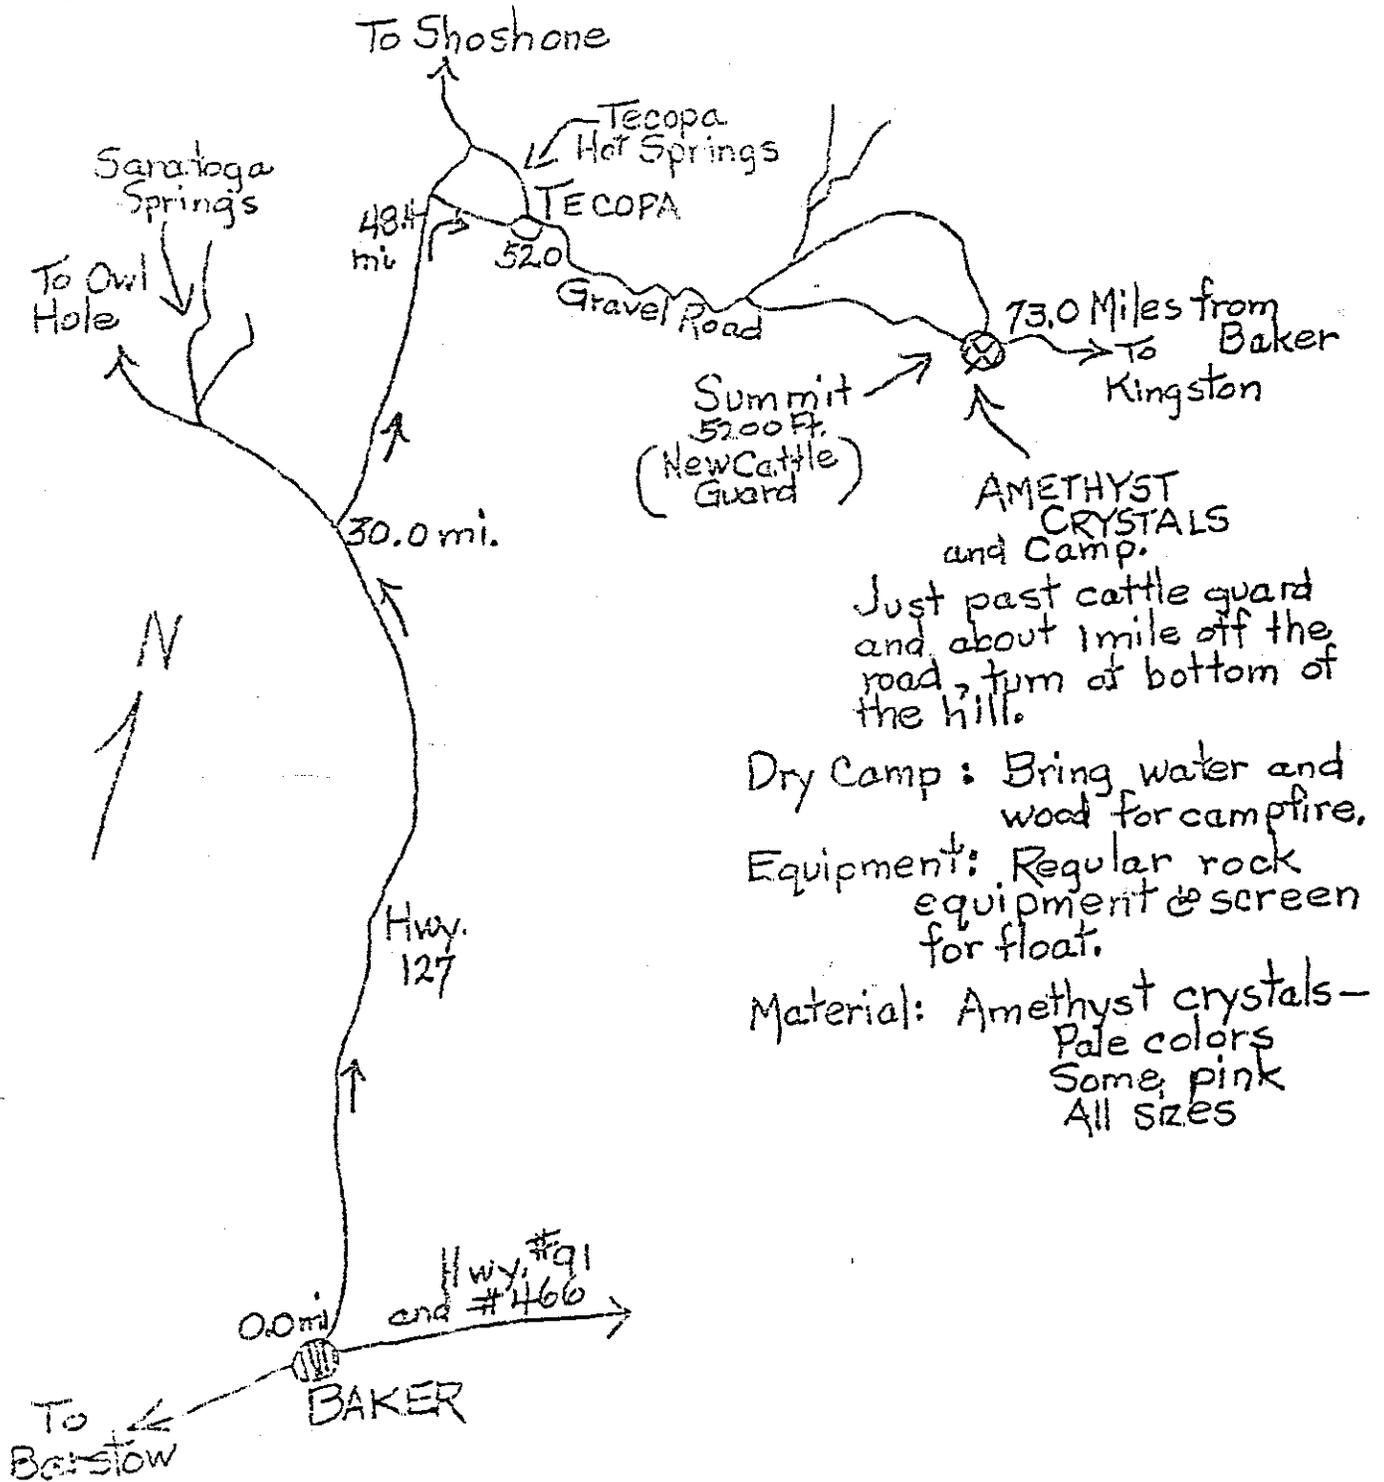 To Shoshone
Tecopa
Hot Springs
Saratoga
Springs
TECOPA
48.4
mi
52.0
To Owl
Hole
Gravel Road
73.0 Miles from
Baker
To
Kingston
Summit
5200 Ft.
(New Cattle
Guard)
AMETHYST
CRYSTALS
and Camp.
30.0 mi.
Just past cattle guard
and about 1 mile off the
road, turn at bottom of
the hill.
N
Dry Camp: Bring water and
wood for campfire.
Equipment: Regular rock
equipment & screen
for float.
Hwy.
127
Material: Amethyst crystals—
Pale colors
Some pink
All sizes
Hwy. #91
and #466
0.0 mi
BAKER
To
Barstow